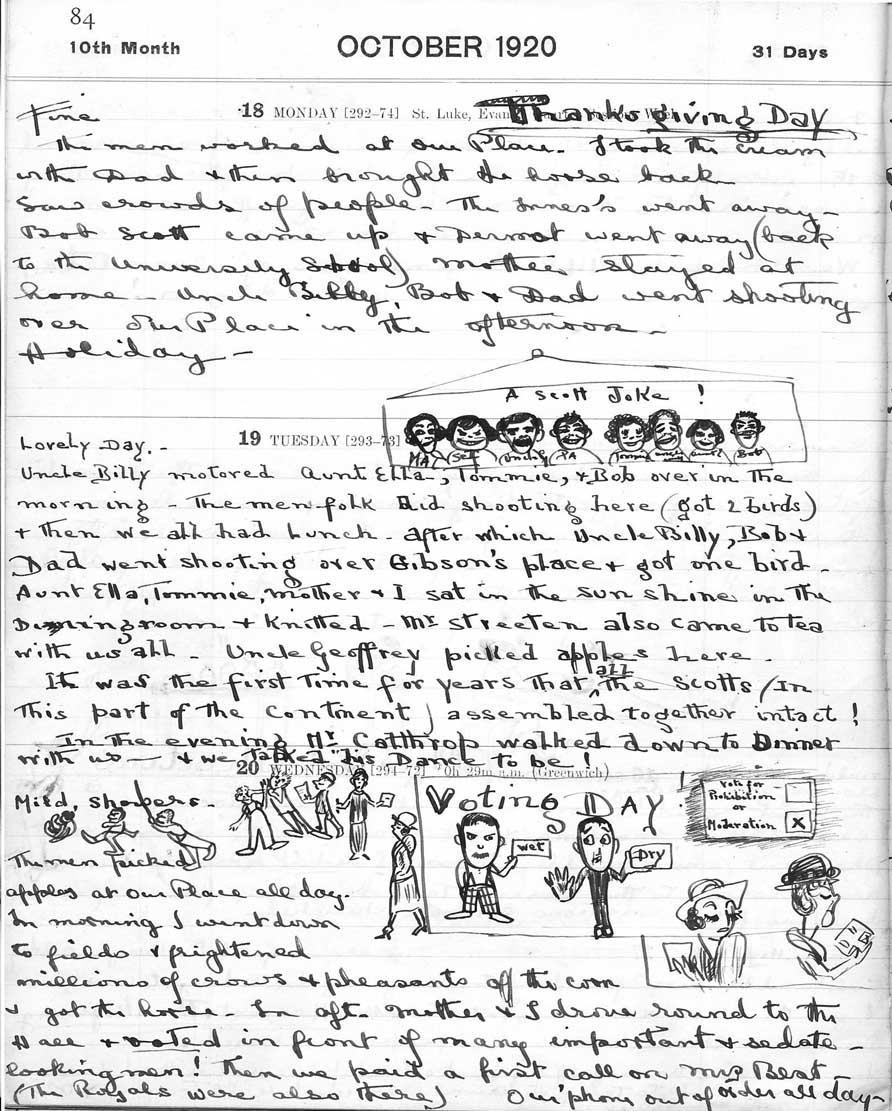 84
10th Month OCTOBER 1920 31 Days
18 MONDAY [292-74] St. Luke, Evan
Fine Thanksgiving Day
The men worked at our Place. I took the cream
with Dad & then brought the horse back
Saw crowds of people - The Innes's went away -
Bob Scott came up & Dermot went away (back
to the University School) Mother stayed at
home - Uncle Billy, Bob & Dad went shooting
over our Place in the afternoon -
Holiday -
A Scott Joke !
MA Self Uncle G PA Tommie Uncle Billy Aunt E Bob
19 TUESDAY [293-73]
Lovely Day. -
Uncle Billy motored Aunt Ella, Tommie, & Bob over in the
morning - The men folk did shooting here (got 2 birds)
& then we all had lunch - After which Uncle Billy, Bob &
Dad went shooting over Gibson's place & got one bird -
Aunt Ella, Tommie, Mother & I sat in the sun shine in the
Diningroom & Knitted - Mr Streeten also came to tea
with us all - Uncle Geoffrey picked apples here -
It was the first time for years that all the Scotts (In
this part of the Continent) assembled together intact !
In the evening Mr Calthrop walked down to Dinner
with us - & we talked "his Dance to be !
20 WEDNESDAY [294-72] 0h 29m a.m. (Greenwich)
Mild, showers -
Voting DAY !
Vote for
Prohibition
or
Moderation X
Wet
Dry
The men picked
apples at our Place all day.
In morning I went down
to fields & frightened
millions of crows & pheasants off the corn
& got the horse - In aft. Mother & I drove round to the
Hall & voted in front of many important & sedate -
looking men ! Then we paid a first call on Mrs Beat -
(The Royals were also there) Our 'phone out of order all day -